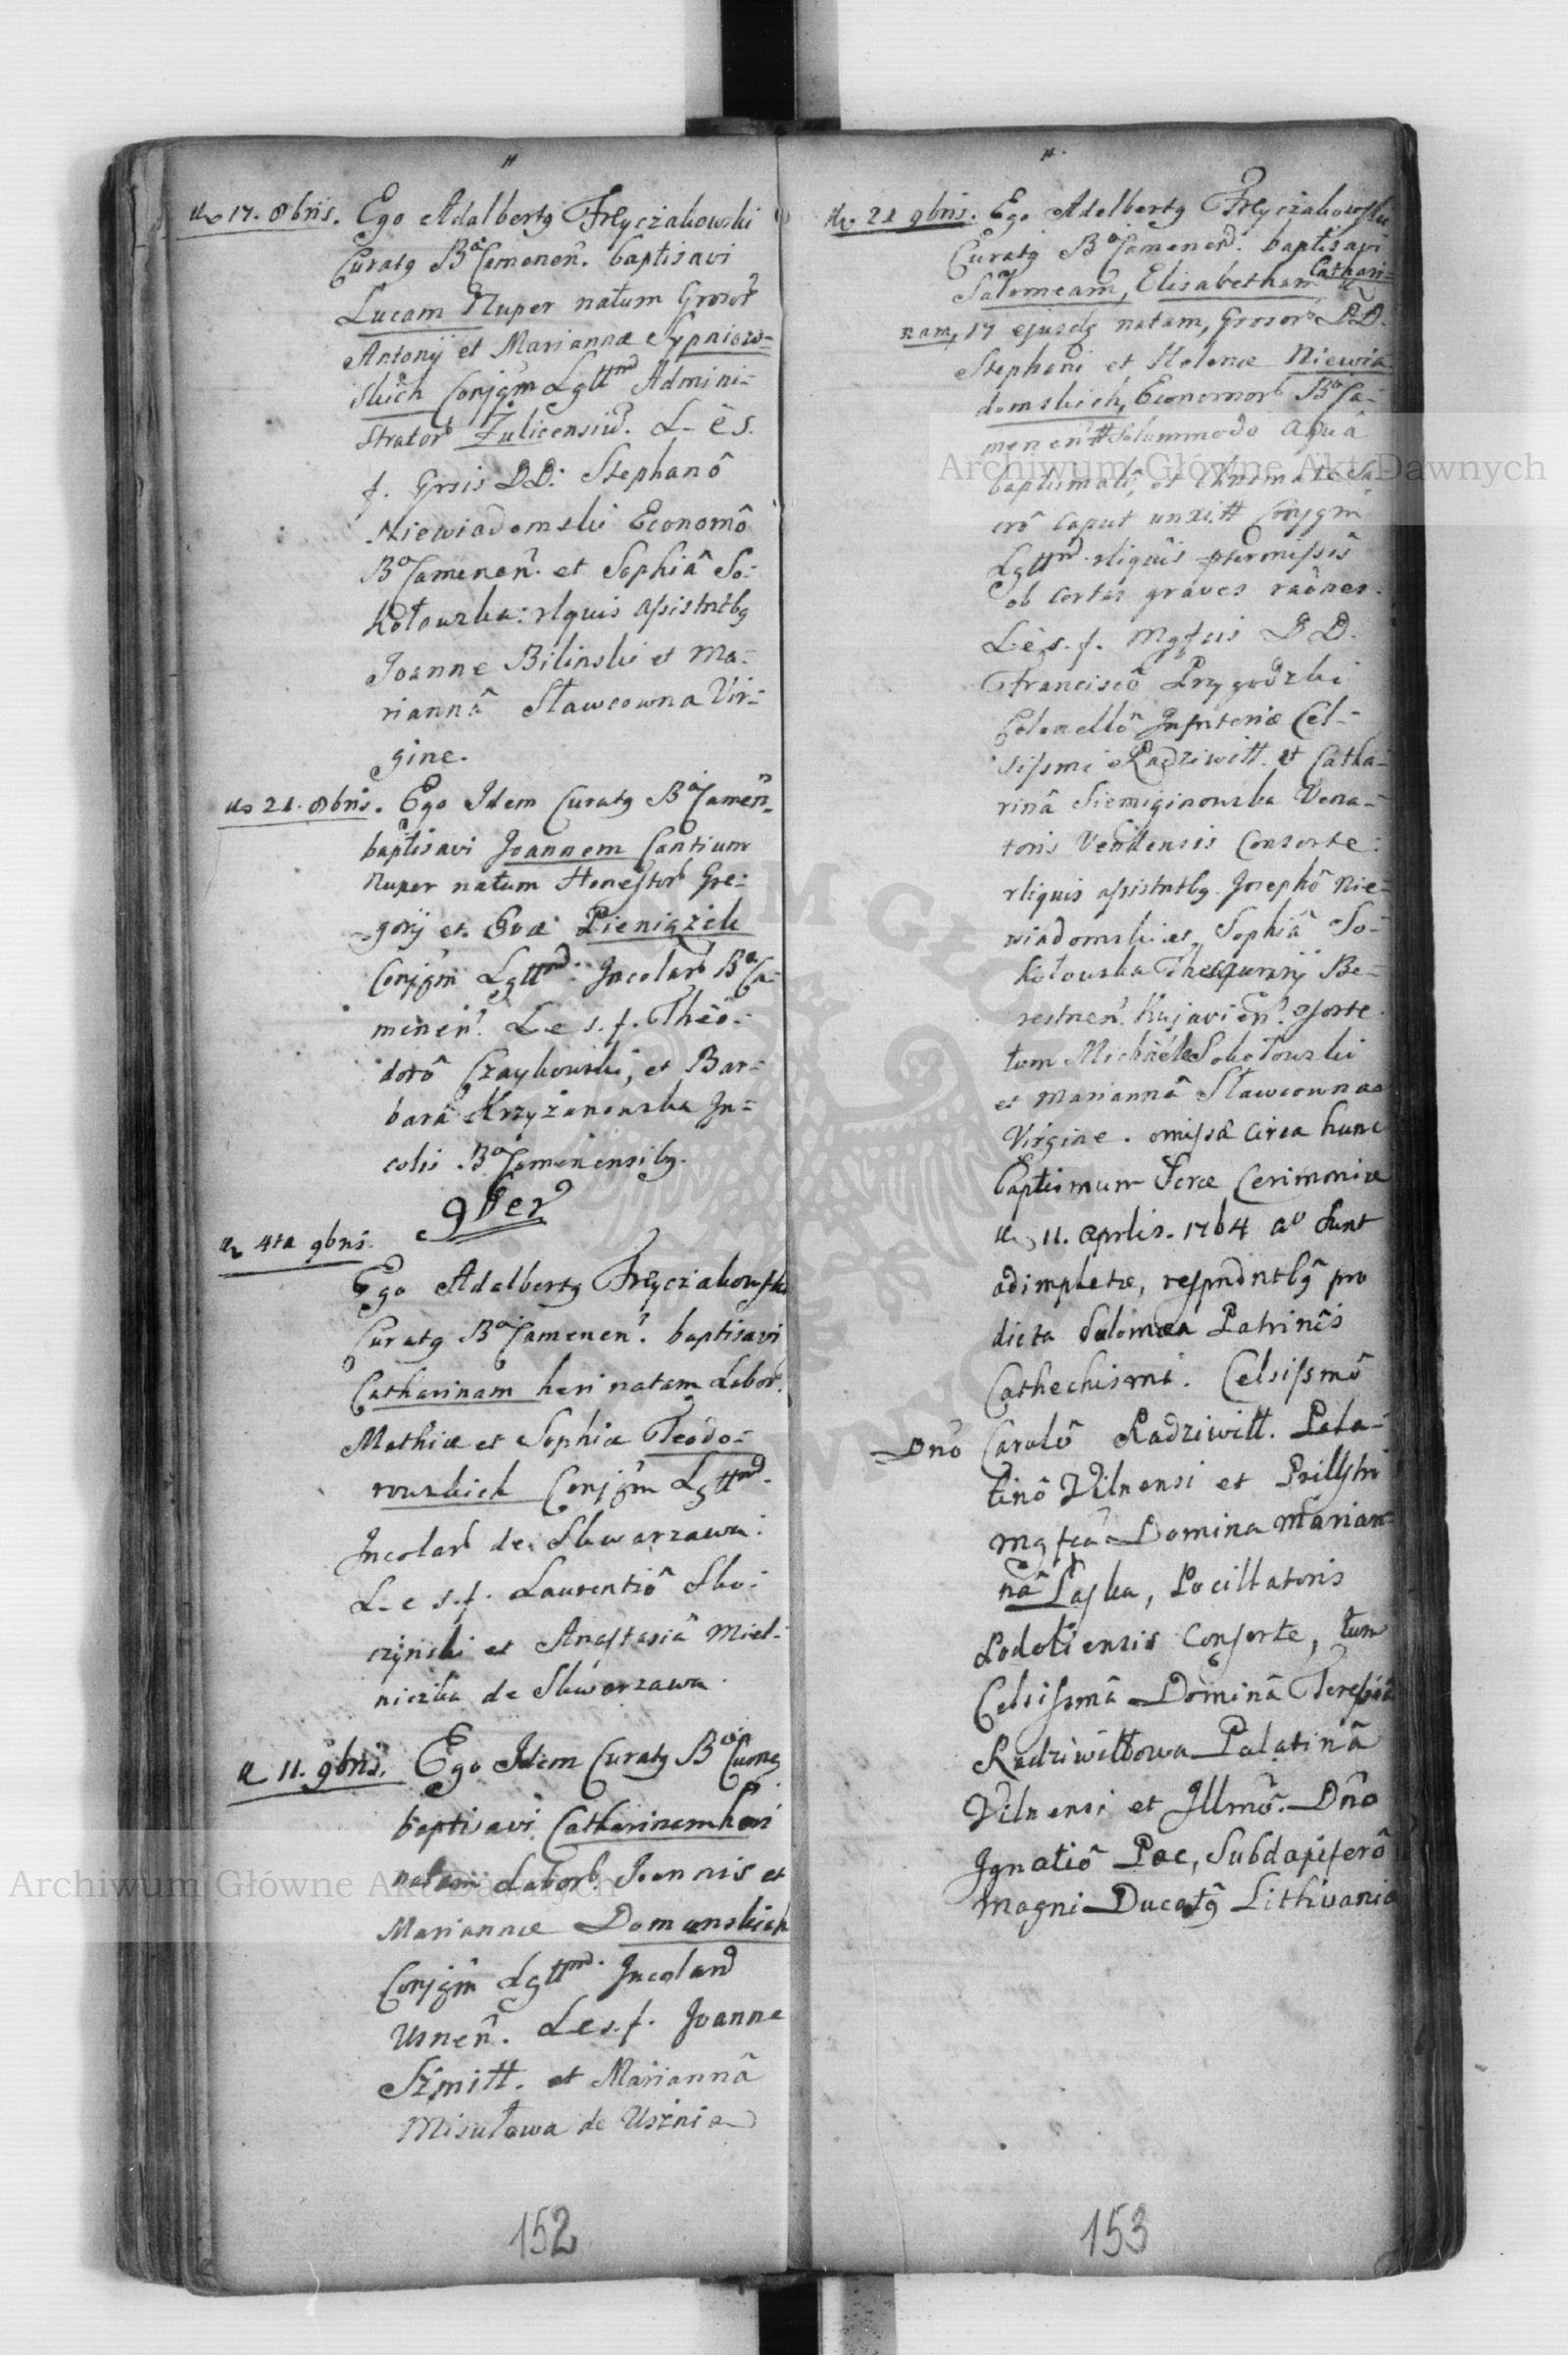 17. 8bris. Ego Adalbertg Fryczakowski
Curatg Bo Camenen. baptisavi
Lucam Nuper natum Grosor
Antonij et Mariannæ Sypniew-
skich Conjgm Lgttm Admini-
strator Zulicensiu. L- e s.
f. Grsis DD: Stephanô
Niewiadomski Economô
Bo Camenen. et Sophiâ So-
kołowska: rlquis assistntbg
Joanne Bilinski et Ma-
riannâ Sławcowna Vir-
gine.
21. 8bris. Ego Idem Curatg Bo Camen.
baptisavi Joannem Cantium
Nuper natum Honestor Gre-
gorij et Evæ Pieniążek
Conjgm Lgttm. Incolar Bo Ca-
menen. L e s. f. Theo-
dorô Czaykowski, et Bar-
bara Krzyżanowska In-
colis Bo Camenensibg.
9ber
4ta 9bris.
Ego Adalbertg Fryczakowski
Curatg Bo Camenen. baptisavi
Catharinam heri natam Labor.
Mathiæ et Sophiæ Teodo-
rowskich Conjgm Lgttm.
Incolar de Skwarzawa.
L- e s. f. Laurentiô Sko-
czynski et Anastasiâ Miel-
niczka de Skwarzawa.
11. 9bris. Ego Idem Curatg Bo Came
baptisavi Catharinam heri
natam Labor Joannis et
Mariannæ Domanskich
Conjgm Lgttm. Incolar
Usnen. L e s. f. Joanne
Szmitt. et Mariannâ
Misułowa de Usznia
152
21 9bris. Ego Adalbertg Fryczakowski
Curatg Bo Camenen. baptisavi
Salomeam, Elisabetham Cathari-
nam, 17 ejusdg natam, Grosor DD.
Stephani et Helenæ Niewia
domskich, Economor Bo Ca-
menen # Solummodo aqua
baptismali, et Chrismate Sa
crô Caput unxi # Conjgm
Lgttm. rliquis ptermissis
ob certas graves raones.
L e s. f. Mgfcis D D.
Franciscô Przygodzki
Colonellô Infnteriæ Cel-
sissmi Radziwill. et Catha-
rinâ Siemiginowska Vena-
toris Vendensis Consorte:
rliquis assistntbg. Josephô Nie-
wiadomski et Sophiâ So-
kołowska Thesaurarij Be-
restnen. Kujavien. 9sorte.
tum Michaele Sokołowski
et Mariannâ Sławcowna
Virgine. omissæ circa hunc
baptismum Scræ Cerimoniæ
11. Aprlis. 1764 ao sunt
adimpletæ, respndntbg pro
dicta Salomea Patrinis
Cathechismi. Celsissmô
Dno Carolô Radziwill. Pala-
tinô Vilnensi et Prillstri
Mgfca Domina Marian-
nâ Łaska, Pocillatoris
Podoliensis Consorte, tum
Celsissmâ Dominâ Teresiâ
Radziwiłłowa Palatinâ
Vilnensi et Illmô. Dno
Ignatiô Pac, Subdapiferô
Magni Ducatg Lithvaniæ
153
Archiwum Główne Akt Dawnych
Archiwum Główne Akt Dawnych